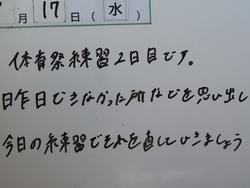 月17日(水)
体育祭練習2日目です。
日昨日できなかった所などを思い出し
今日の練習でそれを直していきましょう